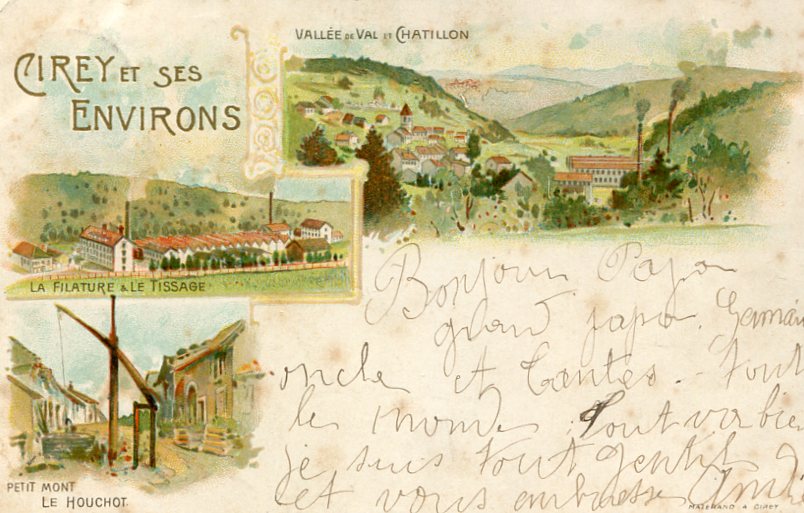 VALLÉE DE VAL ET CHATILLON
CIREY ET SES
ENVIRONS
LA FILATURE & LE TISSAGE
PETIT MONT
LE HOUCHOT.
Bonjour Papa
grand papa.
oncle et tantes. Tout
le monde. Tout va bien
je suis tout gentil
et vous embrasse
MATERAND A CIREY